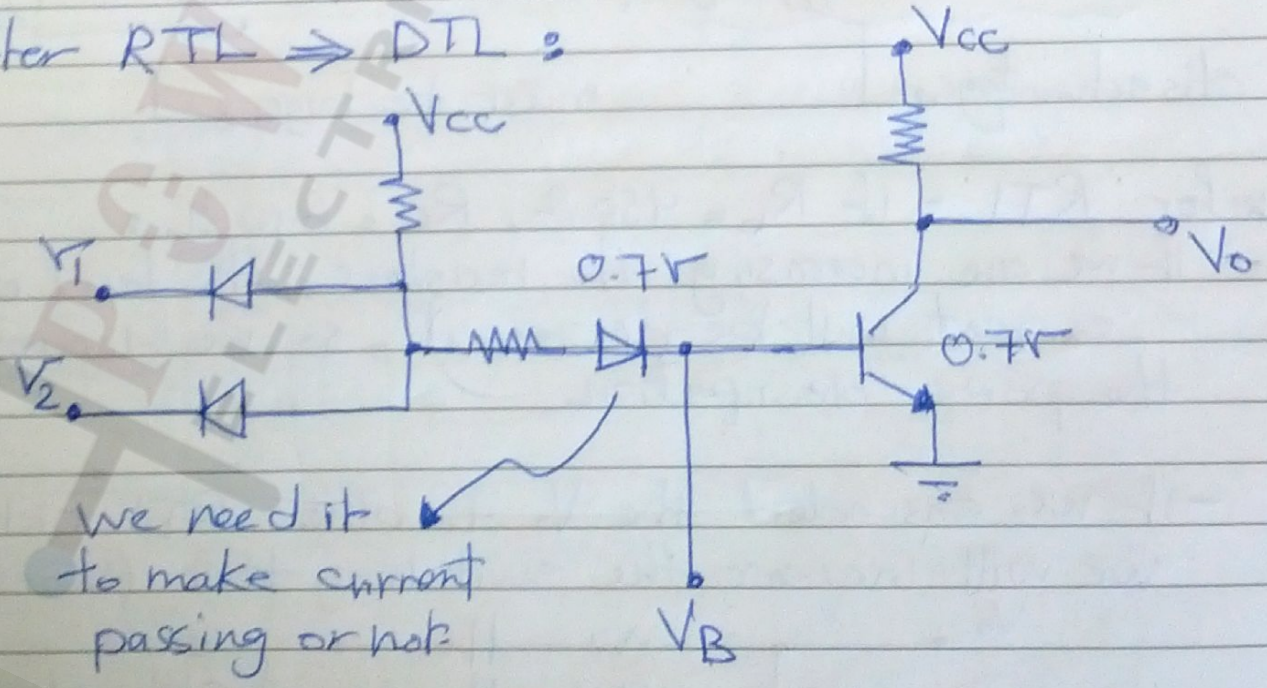 ter RTL ⇒ DTL :
Vcc
Vcc
V1
0.7V
Vo
V2
0.7V
we need it
to make current
passing or not
VB